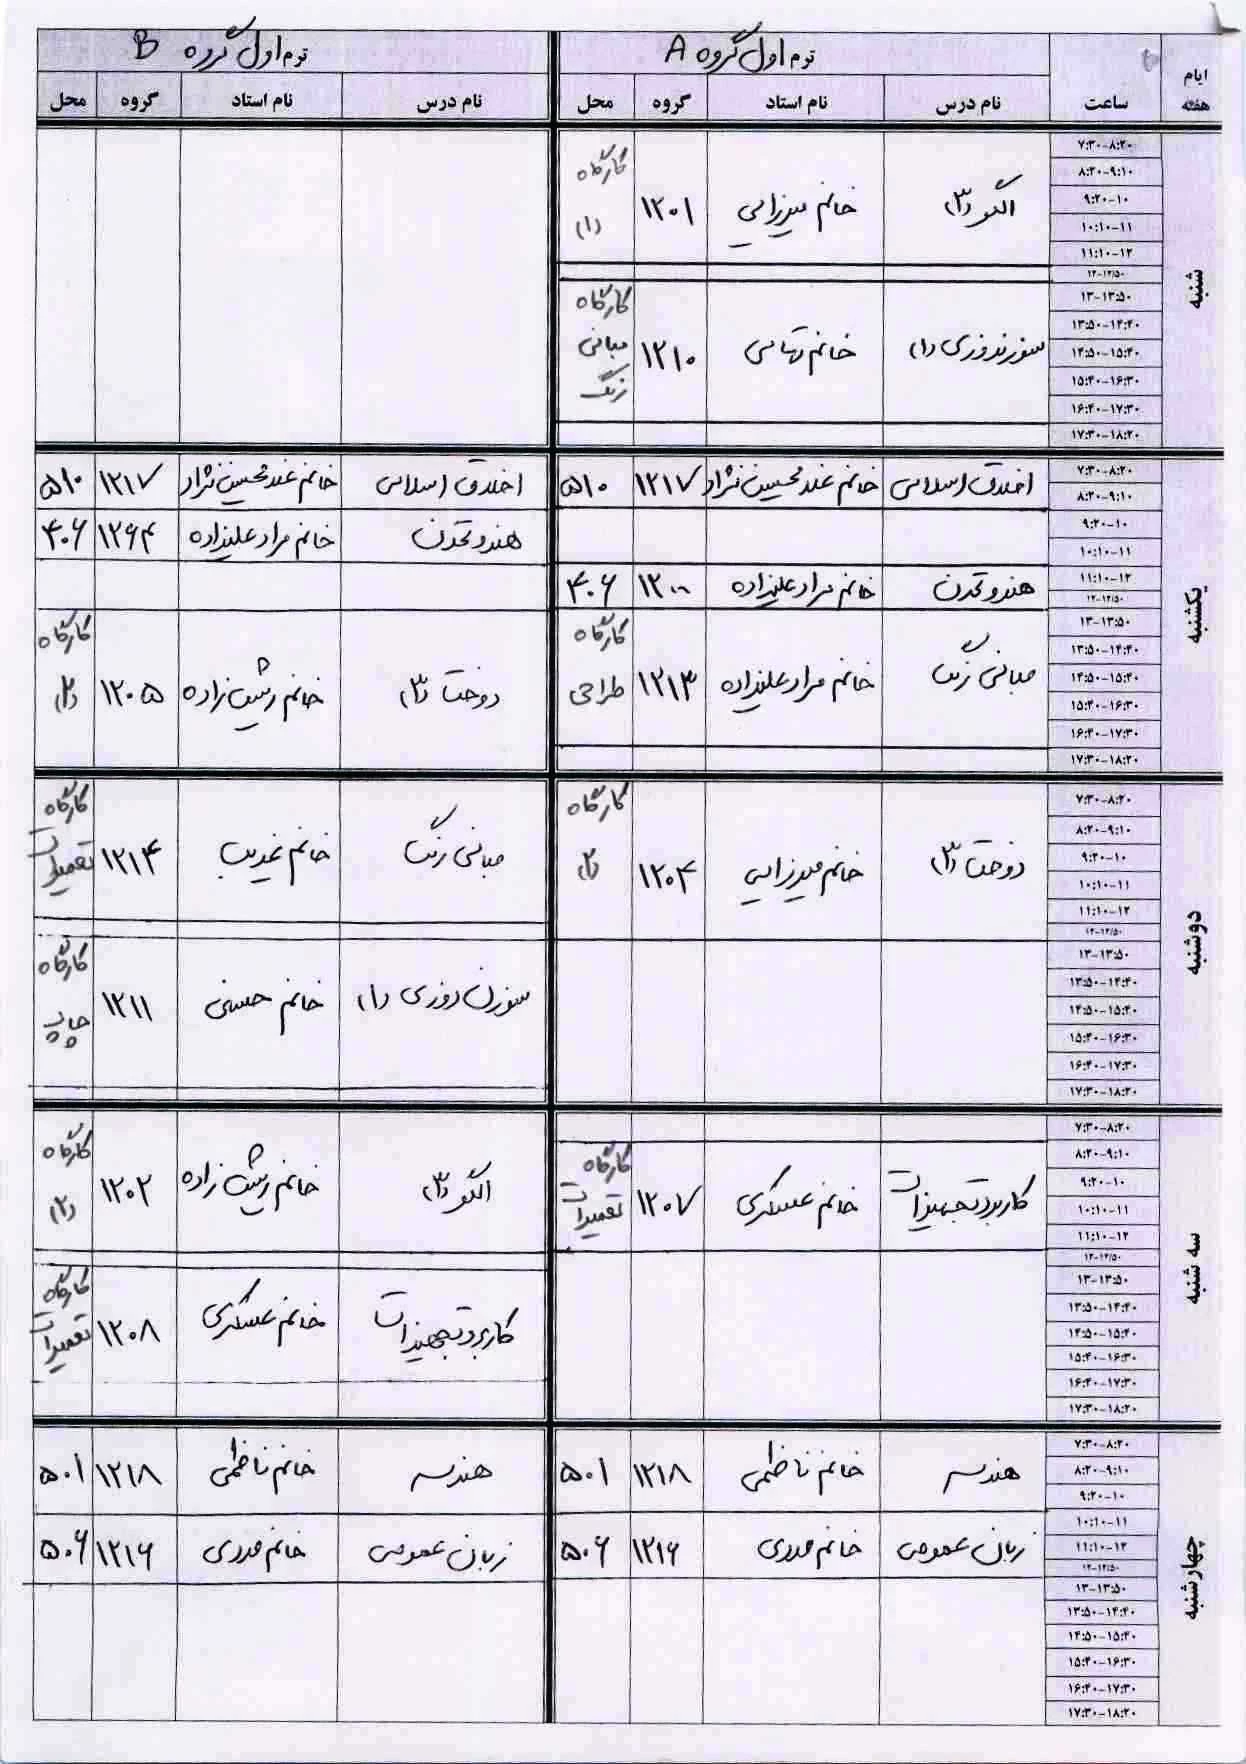 ترم اول گروه A
ترم اول گروه B
ایام هفته
ساعت
نام درس
نام استاد
گروه
محل
نام درس
نام استاد
گروه
محل
شنبه
۷:۳۰-۸:۲۰
۸:۲۰-۹:۱۰
۹:۲۰-۱۰
۱۰:۱۰-۱۱
۱۱:۱۰-۱۲
۱۲-۱۲/۵۰
۱۳-۱۳:۵۰
۱۳:۵۰-۱۴:۴۰
۱۴:۵۰-۱۵:۴۰
۱۵:۴۰-۱۶:۳۰
۱۶:۴۰-۱۷:۳۰
۱۷:۳۰-۱۸:۲۰
الگو (۳)
خانم میرزایی
۱۲۰۱
کارگاه
(۱)
سوزندوزی (۱)
خانم تهامی
۱۲۱۰
کارگاه
مبانی
رنگ
یکشنبه
۷:۳۰-۸:۲۰
۸:۲۰-۹:۱۰
۹:۲۰-۱۰
۱۰:۱۰-۱۱
۱۱:۱۰-۱۲
۱۲-۱۲/۵۰
۱۳-۱۳:۵۰
۱۳:۵۰-۱۴:۴۰
۱۴:۵۰-۱۵:۴۰
۱۵:۴۰-۱۶:۳۰
۱۶:۴۰-۱۷:۳۰
۱۷:۳۰-۱۸:۲۰
اخلاق اسلامی
خانم
۱۲۱۷
۵۱۰
اخلاق اسلامی
خانم
۱۲۱۷
۵۱۰
هنر و تمدن
خانم مرادعلیزاده
۱۲۶۴
۴۰۶
هنر و تمدن
خانم مرادعلیزاده
۴۰۶
مبانی رنگ
خانم مرادعلیزاده
۱۲۱۳
کارگاه
طراحی
دوخت (۳)
خانم رشیدزاده
۱۲۰۵
کارگاه
(۲)
دوشنبه
۷:۳۰-۸:۲۰
۸:۲۰-۹:۱۰
۹:۲۰-۱۰
۱۰:۱۰-۱۱
۱۱:۱۰-۱۲
۱۲-۱۲/۵۰
۱۳-۱۳:۵۰
۱۳:۵۰-۱۴:۴۰
۱۴:۵۰-۱۵:۴۰
۱۵:۴۰-۱۶:۳۰
۱۶:۴۰-۱۷:۳۰
۱۷:۳۰-۱۸:۲۰
دوخت (۳)
خانم میرزایی
۱۲۰۴
کارگاه
(۲)
مبانی رنگ
خانم غریب
۱۲۱۴
کارگاه
تعمیرات
سوزن دوزی (۱)
خانم حسنی
۱۲۱۱
کارگاه
چاپ
سه شنبه
۷:۳۰-۸:۲۰
۸:۲۰-۹:۱۰
۹:۲۰-۱۰
۱۰:۱۰-۱۱
۱۱:۱۰-۱۲
۱۲-۱۲/۵۰
۱۳-۱۳:۵۰
۱۳:۵۰-۱۴:۴۰
۱۴:۵۰-۱۵:۴۰
۱۵:۴۰-۱۶:۳۰
۱۶:۴۰-۱۷:۳۰
۱۷:۳۰-۱۸:۲۰
کاربرد تجهیزات
خانم عسکری
۱۲۰۷
کارگاه
تعمیرات
الگو (۳)
خانم رشیدزاده
۱۲۰۲
کارگاه
(۲)
کاربرد تجهیزات
خانم عسکری
۱۲۰۸
کارگاه
تعمیرات
چهارشنبه
۷:۳۰-۸:۲۰
۸:۲۰-۹:۱۰
۹:۲۰-۱۰
۱۰:۱۰-۱۱
۱۱:۱۰-۱۲
۱۲-۱۲/۵۰
۱۳-۱۳:۵۰
۱۳:۵۰-۱۴:۴۰
۱۴:۵۰-۱۵:۴۰
۱۵:۴۰-۱۶:۳۰
۱۶:۴۰-۱۷:۳۰
۱۷:۳۰-۱۸:۲۰
هندسه
خانم ناظمی
۱۲۱۸
۵۰۱
هندسه
خانم ناظمی
۱۲۱۸
۵۰۱
زبان عمومی
خانم
۱۲۱۶
۵۰۶
زبان عمومی
خانم
۱۲۱۶
۵۰۶